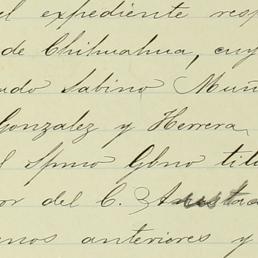 el expediente resp
de Chihuahua, cuy
udo Sabino Muñ
Gonzalez y Herrera
l Spmo Gbno titu
or del C.
enos anteriores y